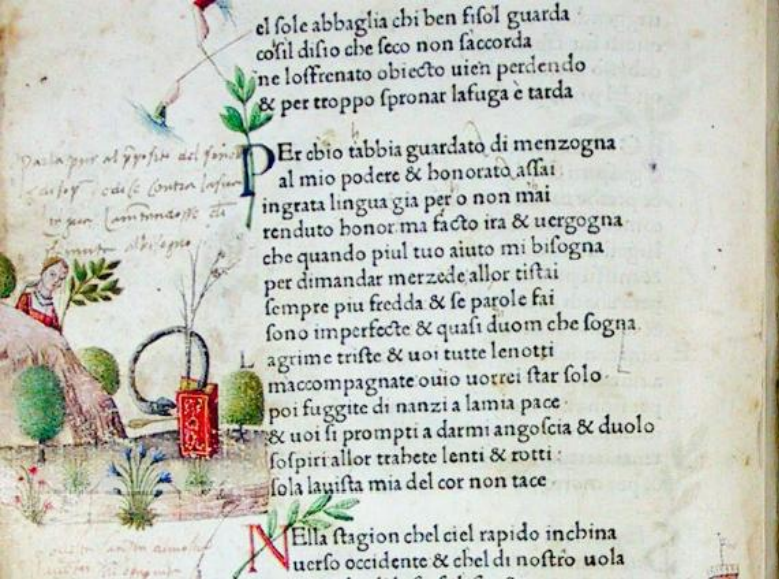 el ſole abbaglia chi ben fiſol guarda
coſil diſio che ſeco non ſaccorda
ne loſfrenato obiecto uien perdendo
& per troppo ſpronar lafuga è tarda
PEr cbio tabbia guardato di menzogna
al mio podere & honorato aſſai
ingrata lingua gia pero non mai
renduto honor ma facto ira & uergogna
che quando piul tuo aiuto mi biſogna
per dimandar merzede allor tiſtai
ſempre piu fredda & ſe parole fai
ſono imperfecte & quaſi duom che ſogna
L agrime triſte & uoi tutte lenotti
maccompagnate ouio uorrei ſtar ſolo
poi fuggite di nanzi a lamia pace
& uoi ſi prompti a darmi angoſcia & duolo
ſoſpiri allor trahete lenti & rotti:
ſola lauiſta mia del cor non tace
NElla ſtagion chel ciel rapido inchina
uerſo occidente & chel di noſtro uola